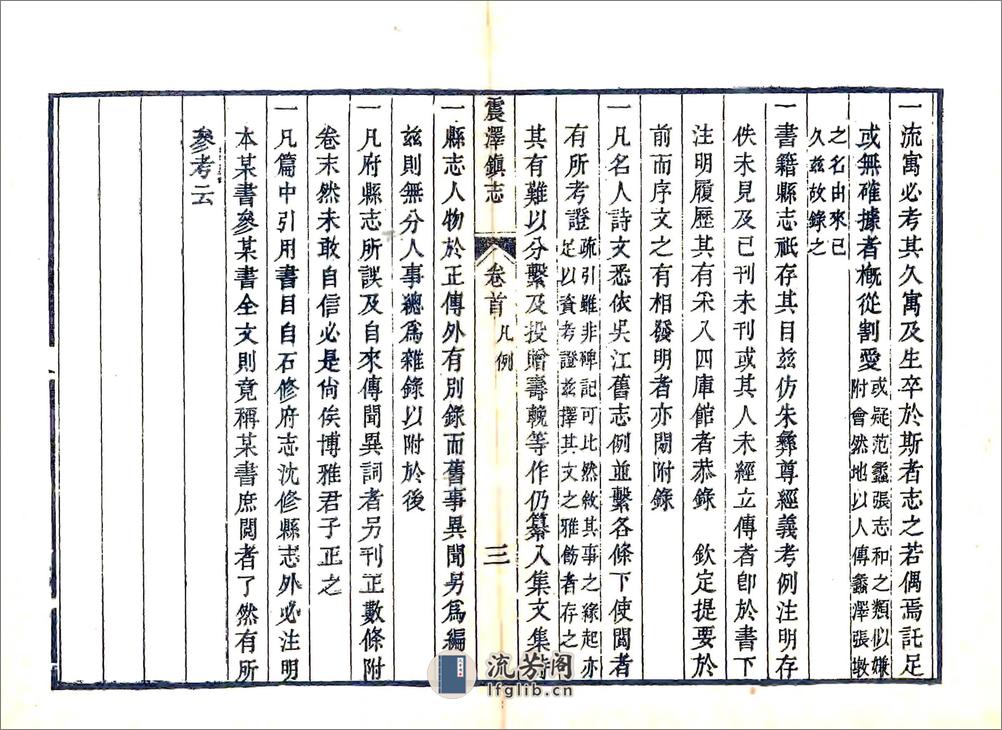 一流寓必考其久寓及生卒於斯者志之若偶焉託足
或無確據者槪從割愛或疑范蠡張志和之類似嫌
附會然地以人傳蠡澤張墩
之名由來已
久茲故錄之
一書籍縣志祇存其目茲仿朱彝尊經義考例注明存
佚未見及已刊未刊或其人未經立傳者卽於書下
注明履歷其有采入四庫館者恭錄 欽定提要於
前而序文之有相發明者亦間附錄
一凡名人詩文悉依吳江舊志例並繫各條下使閱者
有所考證疏引雖非碑記可比然敘其事之緣起亦
足以資考證茲擇其文之雅飭者存之
其有難以分繫及投贈壽輓等作仍纂入集文集詩
震澤鎭志 卷首 凡例 三
一縣志人物於正傳外有別錄而舊事異聞另爲編
茲則無分人事總爲雜錄以附於後
一凡府縣志所誤及自來傳聞異詞者另刊正數條附
卷末然未敢自信必是尙俟博雅君子正之
一凡篇中引用書目自石修府志沈修縣志外必注明
本某書參某書全文則竟稱某書庶閱者了然有所
參考云
流芳阁
lfglib.cn